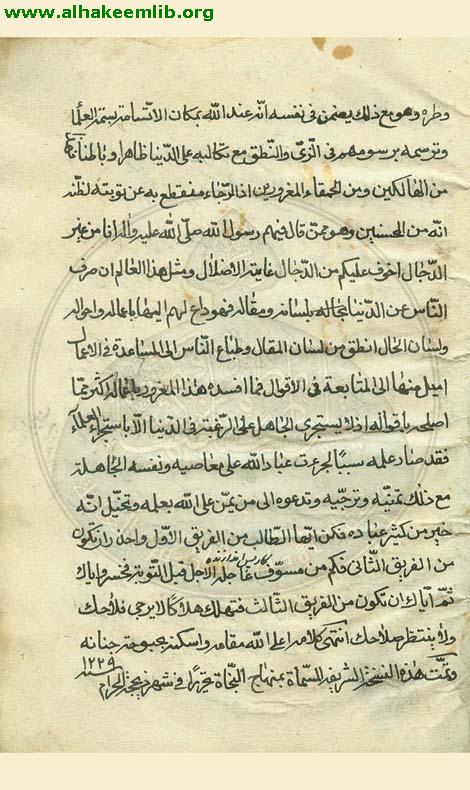 www.alhakeemlib.org
وطره وهو مع ذلك يضمن في نفسه انه عند الله بمكان لاتسامه بسمة العلماء
وترسمه برسومهم في الزى والنطق مع تكالبه على الدنيا ظاهرا وباطنا فهو
من الهالكين ومن الحمقاء المغرورين اذ الرجاء منقطع به عن توبته لظنه
انه من المحسنين وهو ممن قال فيهم رسول الله صلى الله عليه واله انا من غير
الدجال اخوف عليكم من الدجال غايته الاضلال ومثل هذا العالم ان صرف
الناس عن الدنيا بلسانه ومقاله فهو داع لهم اليها باعماله واحواله
ولسان الحال انطق من لسان المقال وطباع الناس الى المساعدة في الاعمال
اميل منها الى المتابعة في الاقوال فما افسده هذا المغرور باعماله اكثر مما
اصلحه باقواله اذ لا يستجرى الجاهل على الرغبة في الدنيا الا باستجراء العلماء
فقد صار علمه سببا لجرءة عباد الله على معاصيه ونفسه الجاهلة
مع ذلك تمنيه وترجيه وتدعوه الى من يمن على الله بعلمه وتخيل انه
خير من كثير عباده فكن ايها الطالب من الفريق الاول واحذر ان تكون
من الفريق الثاني فكم من مسوف عاجله الاجل قبل التوبة فخسر واياك
ثم اياك ان تكون من الفريق الثالث فتهلك هلاكا لا يرجى فلاحك
ولا ينتظر صلاحك انتهى كلامه اعلى الله مقامه واسكنه بحبوحة جنانه
وتمت هذه النسخة الشريفة المسماة بمنهاج النجاة في شهر ذيحجة الحرام
سنة ١٢٢٩